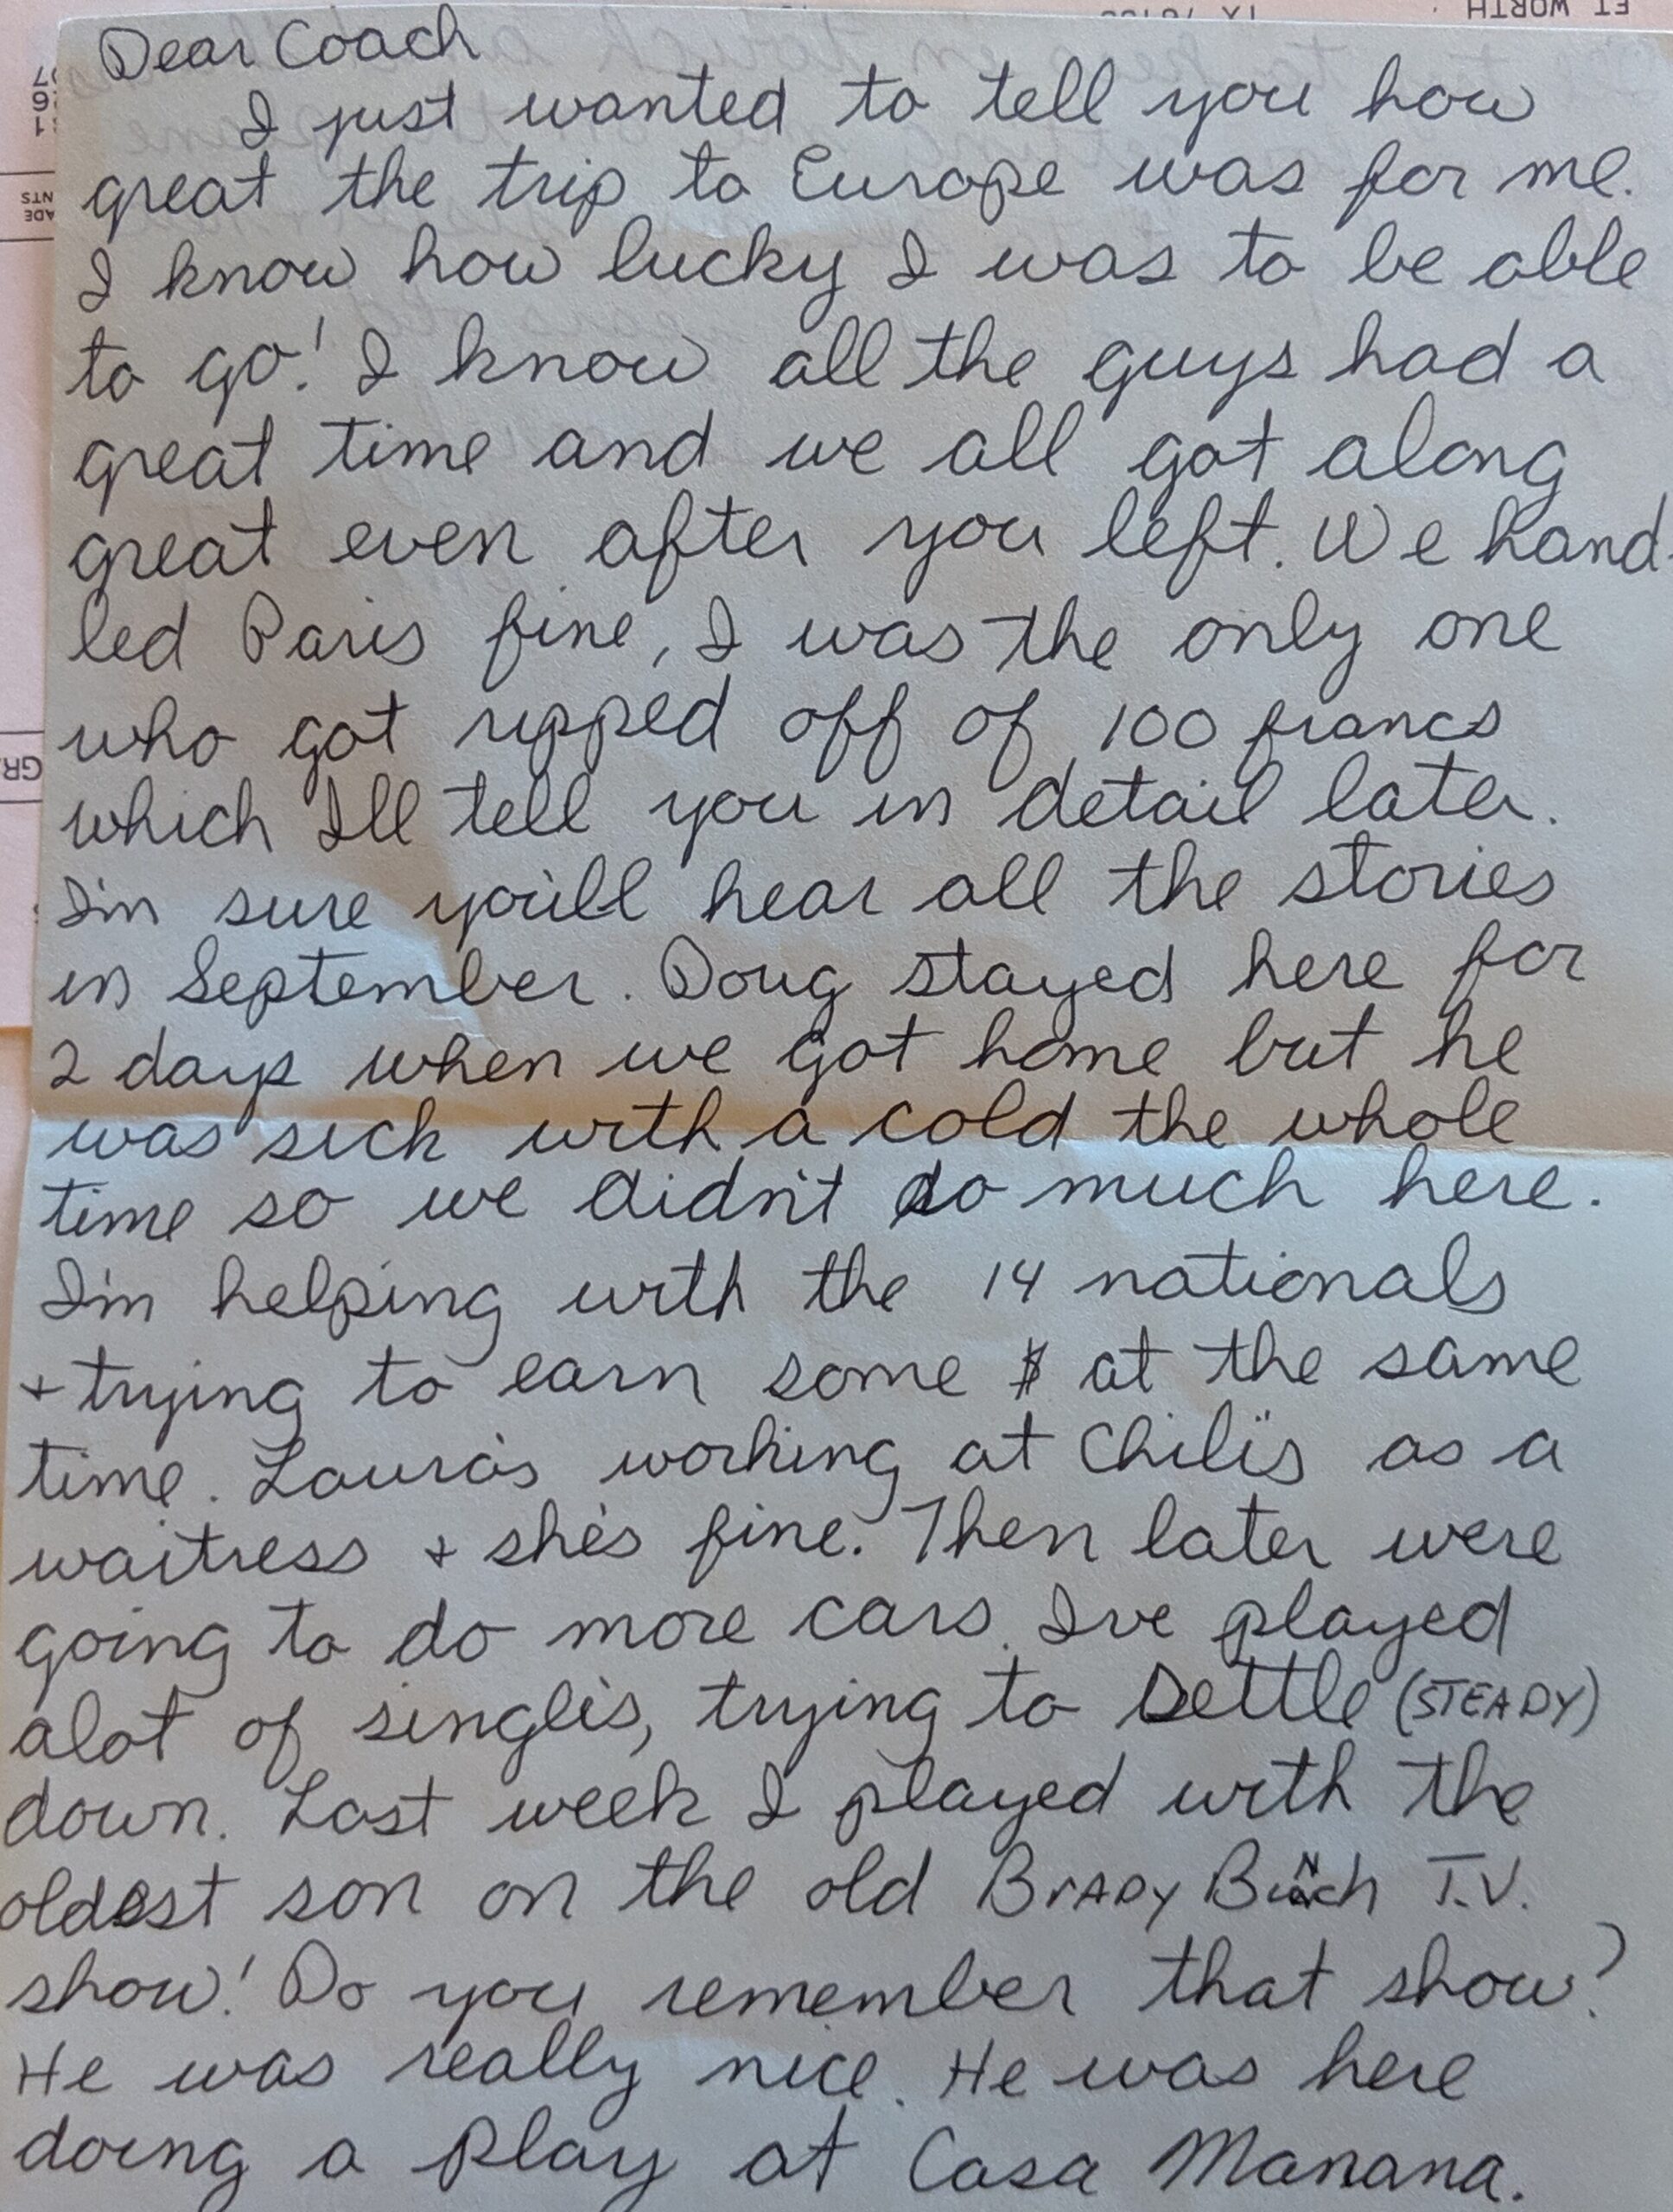 FT WORTH TX 76109
Dear Coach
I just wanted to tell you how
great the trip to Europe was for me.
I know how lucky I was to be able
to go! I know all the guys had a
great time and we all got along
great even after you left. We hand-
led Paris fine, I was the only one
who got ripped off of 100 francs
which I'll tell you in detail later.
I'm sure you'll hear all the stories
in September. Doug stayed here for
2 days when we got home but he
was sick with a cold the whole
time so we didn't do much here.
I'm helping with the 14 nationals
+ trying to earn some $ at the same
time. Laura's working at Chili's as a
waitress + she's fine. Then later were
going to do more cars. I've played
alot of singles, trying to settle (STEADY)
down. Last week I played with the
oldest son on the old BrADY BuNch T.V.
show! Do you remember that show?
He was really nice. He was here
doing a play at Casa Manana.